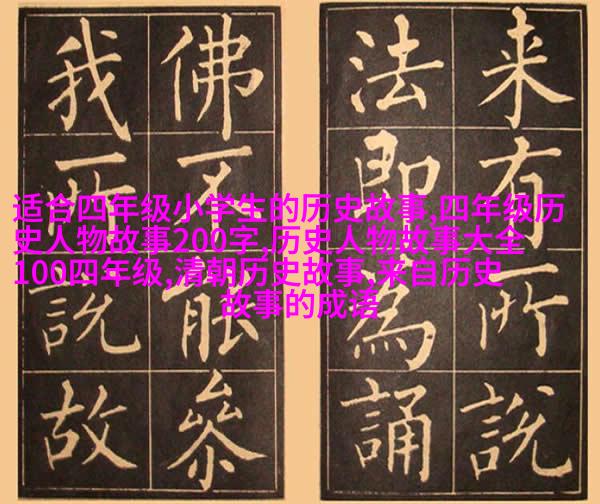 来有所説
法即為誦
佛不能參
我所説故
适合四年级小学生的历史故事,四年级历
史人物故事200字,历史人物故事大全
100四年级,清朝历史故事,来自历史
故事的成语